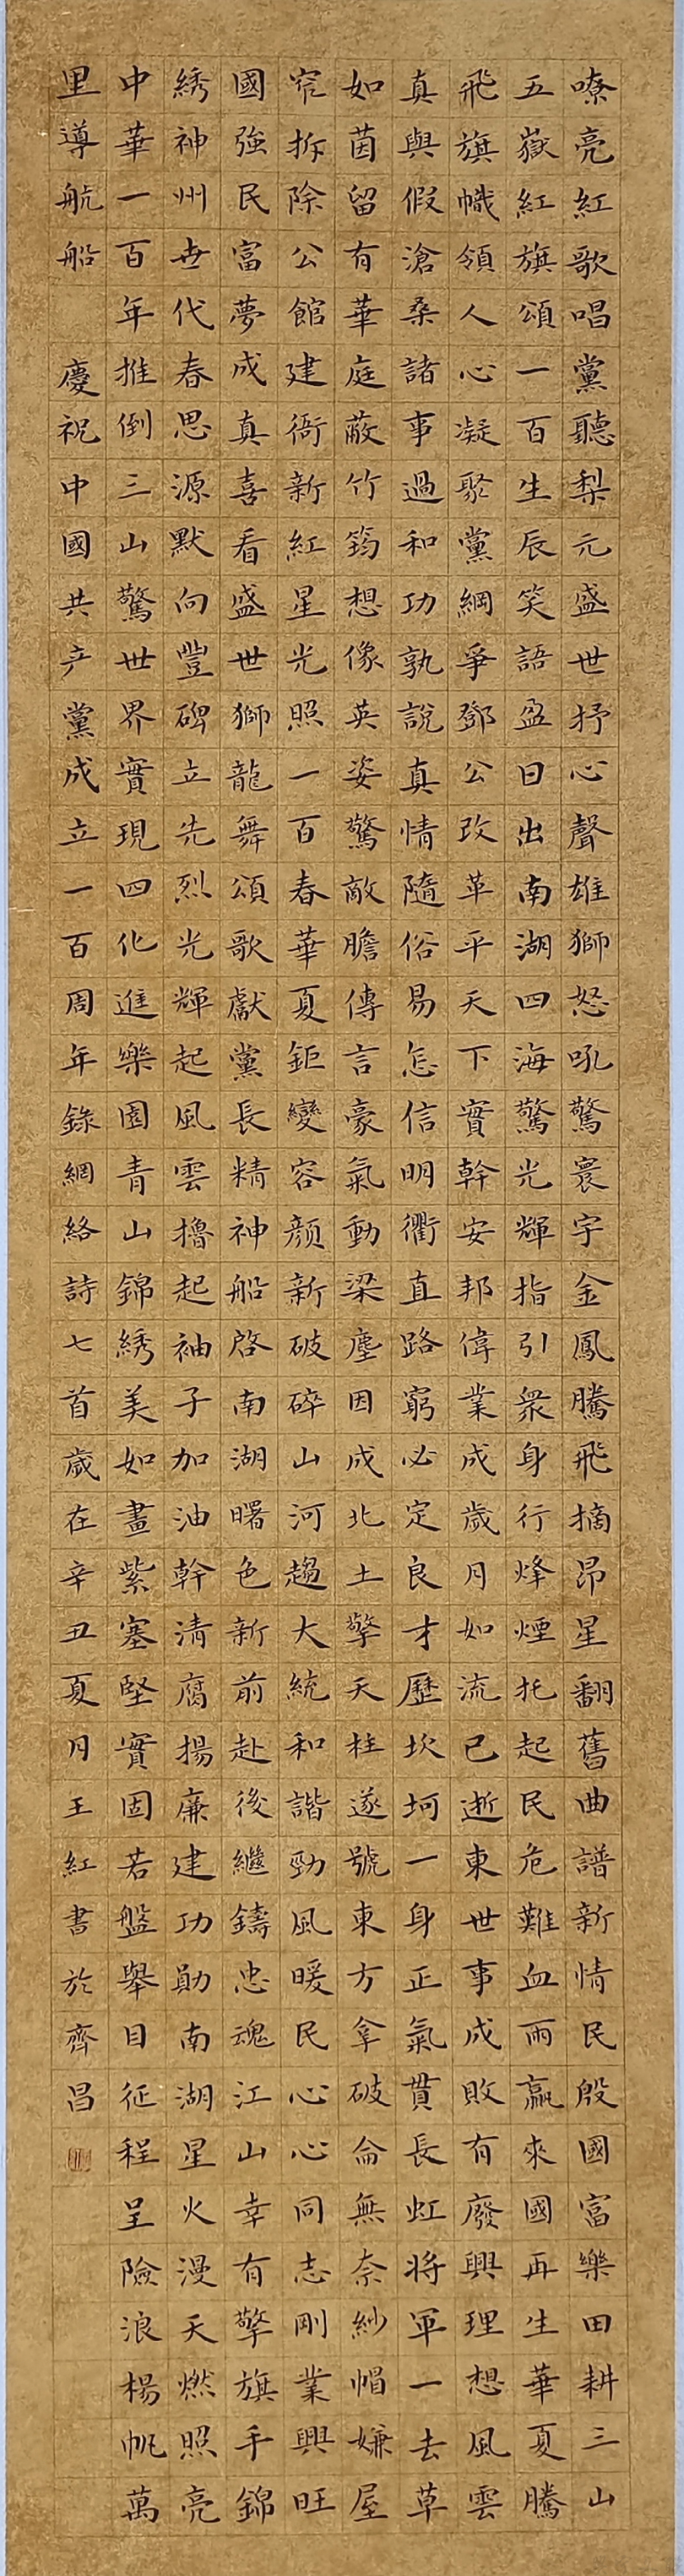 嘹亮紅歌唱黨聽梨元盛世抒心聲雄獅怒吼驚寰宇金鳳騰飛摘昂星翻舊曲譜新情民殷國富樂田耕三山
五嶽紅旗頌一百生辰笑語盈日出南湖四海驚光輝指引衆身行烽煙托起民危難血雨贏來國再生華夏騰
飛旗幟領人心凝聚黨綱爭鄧公改革平天下實幹安邦偉業成歲月如流已逝東世事成敗有廢興理想風雲
真與假滄桑諸事過和功孰說真情隨俗易怎信明衢直路窮必定良才歷坎坷一身正氣貫長虹將軍一去草
如茵留有華庭蔽竹筠想像英姿驚敵膽傳言豪氣動梁塵因成北土擎天柱遂號東方拿破侖無奈紗帽嫌屋
窄拆除公館建衙新紅星光照一百春華夏鉅變容顏新破碎山河趨大統和諧勁風暖民心心同志剛業興旺
國強民富夢成真喜看盛世獅龍舞頌歌獻黨長精神船啓南湖曙色新前赴後繼鑄忠魂江山幸有擎旗手錦
綉神州世代春思源默向豐碑立先烈光輝起風雲擼起袖子加油幹清腐揚廉建功勛南湖星火漫天燃照亮
中華一百年推倒三山驚世界實現四化進樂園青山錦綉美如畫紫塞堅實固若盤舉目征程呈險浪楊帆萬
里導航船 慶祝中國共产黨成立一百周年錄網絡詩七首歲在辛丑夏月王紅書於齊昌